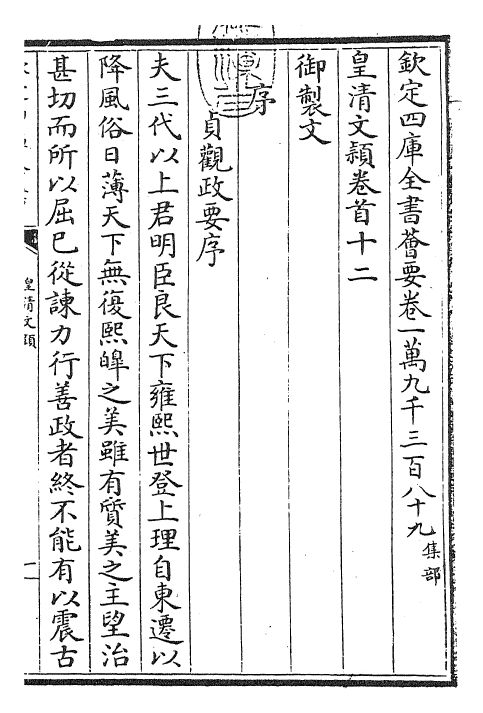 欽定四庫全書薈要卷一萬九千三百八十九 集部
皇清文穎卷首十二
御製文
序
貞觀政要序
夫三代以上君明臣良天下雍熙世登上理自東遷以
降風俗日薄天下無復熙皥之美雖有質美之主望治
甚切而所以屈已從諫力行善政者終不能有以震古
皇清文穎
一